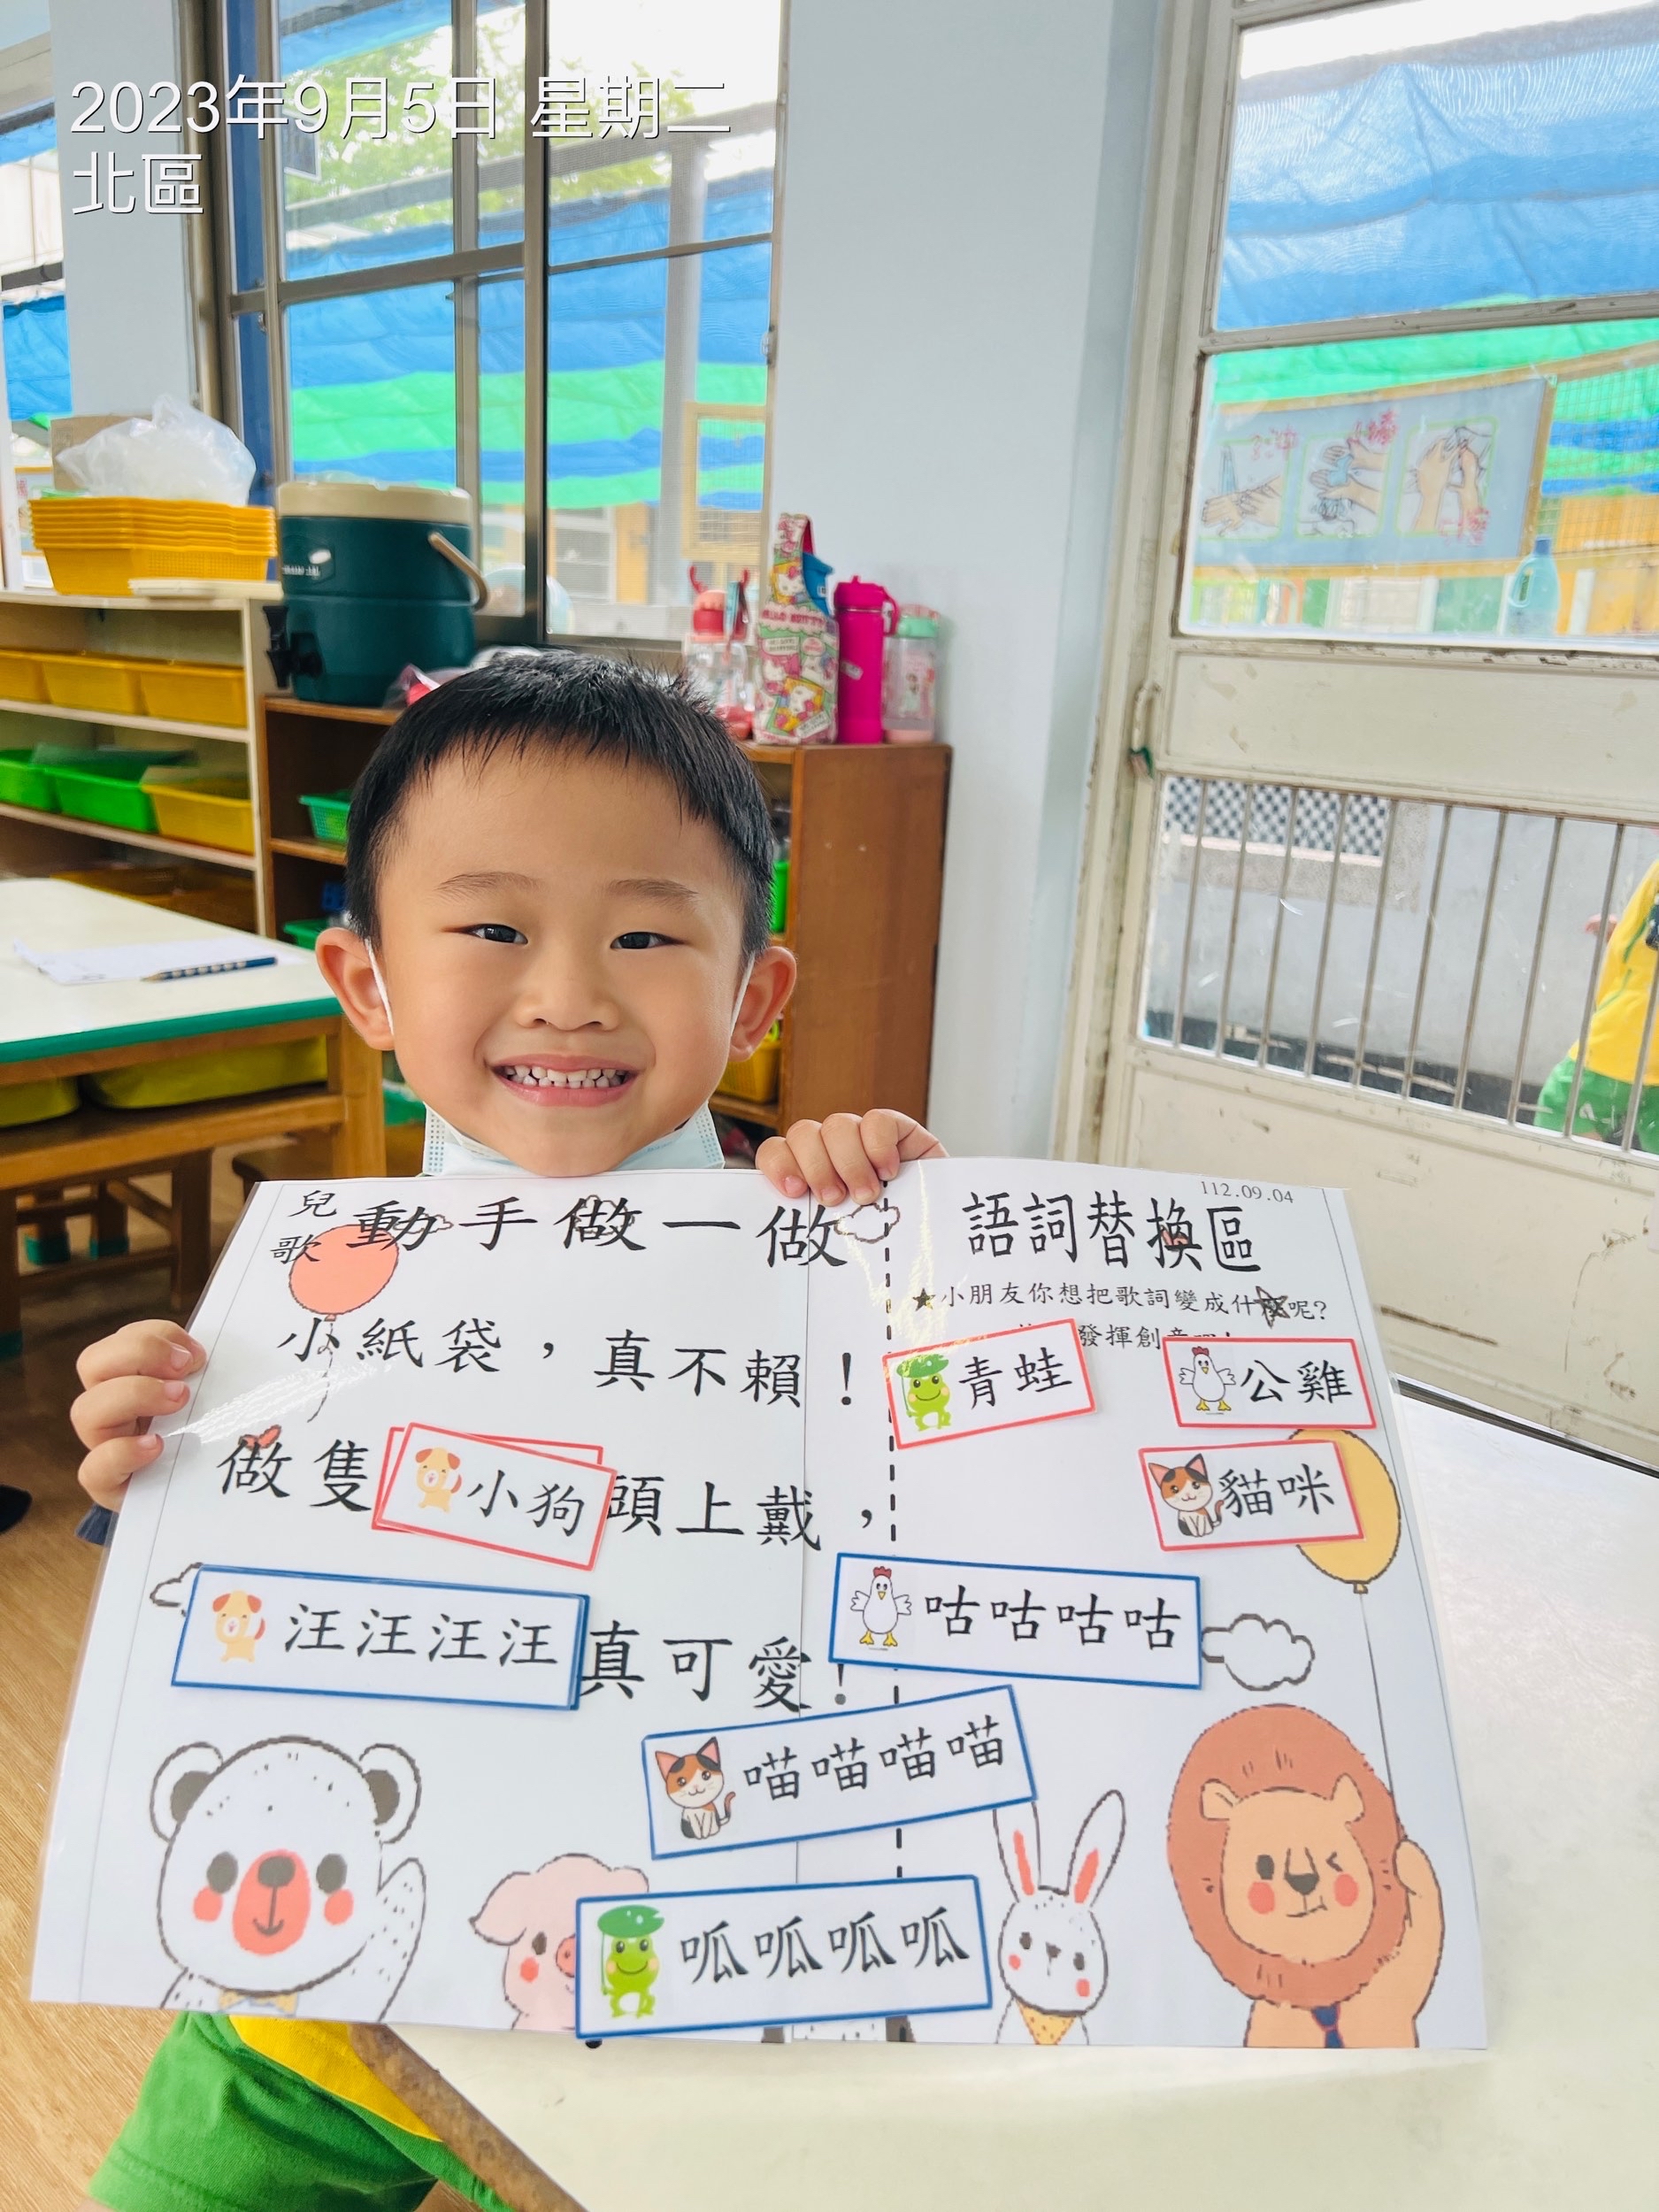 2023年9月5日 星期二
北區
兒歌
動手做一做
小紙袋，真不賴！
做隻小狗頭上戴，
汪汪汪汪真可愛！
112.09.04
語詞替換區
★小朋友你想把歌詞變成什麼呢？
發揮創意
青蛙
公雞
貓咪
咕咕咕咕
喵喵喵喵
呱呱呱呱